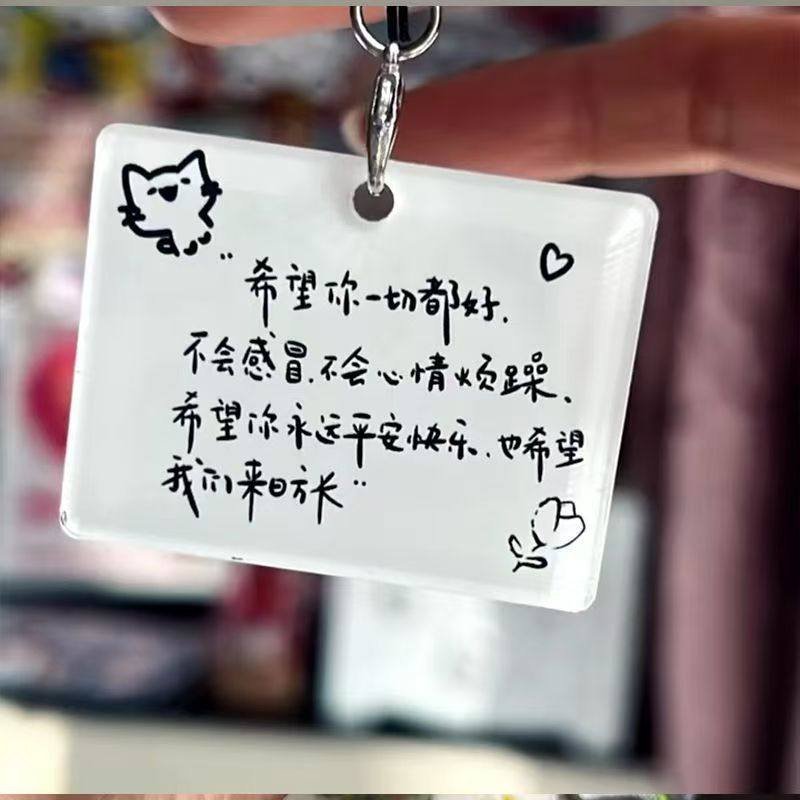 “希望你一切都好.
不会感冒.不会心情烦躁.
希望你永远平安快乐.也希望
我们来日方长”